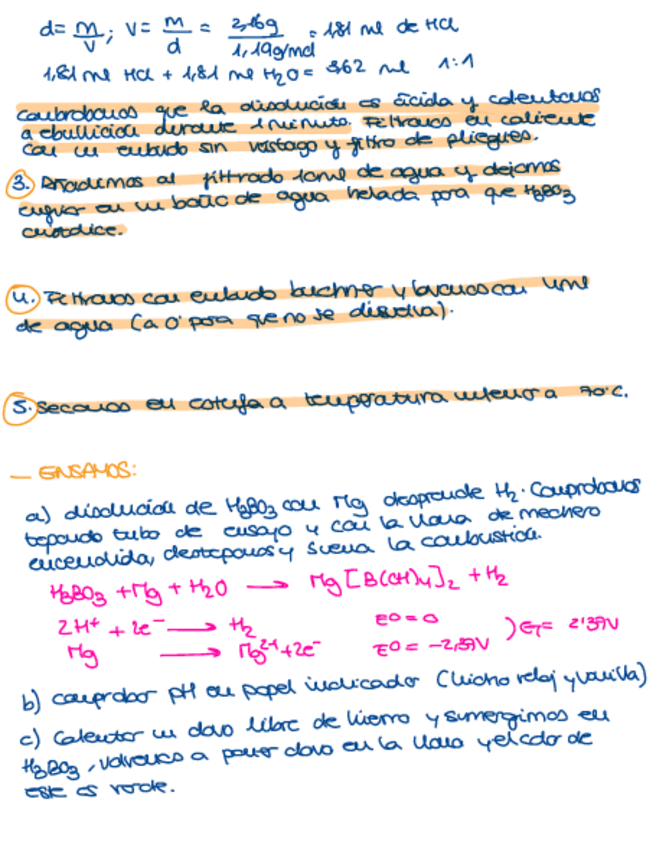 d = m/V ; V = m/d = 2,16g / 1,19g/ml = 1,81 ml de HCl
1,81 ml HCl + 1,81 ml H2O = 3,62 ml 1:1
comprobamos que la disolución es ácida y calentamos
a ebullición durante 1 minuto. Filtramos en caliente
con un embudo sin vástago y filtro de pliegues.
3. Añadimos al filtrado 10ml de agua y dejamos
enfriar en un baño de agua helada para que H3BO3
cristalice.
4. Filtramos con embudo buchner y lavamos con 1ml
de agua (a 0º para que no se disuelva).
5. Secamos en estufa a temperatura inferior a 70ºC.
— ENSAYOS:
a) disolución de H3BO3 con Mg desprende H2. Comprobamos
tapando tubo de ensayo y con la llama de mechero
encendida, destapamos y suena la combustión.
H3BO3 + Mg + H2O → Mg[B(OH)4]2 + H2
2H+ + 2e- → H2 E0 = 0
Mg → Mg2+ + 2e- E0 = -2,37V ) ET = 2'37V
b) comprobar pH en papel indicador (vidrio reloj y varilla)
c) Calentar un clavo libre de hierro y sumergimos en
H3BO3, volvemos a poner clavo en la llama y el color de
este es verde.